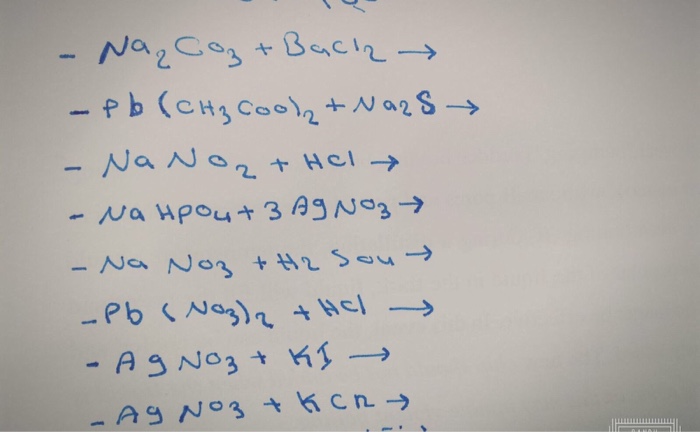 - Na2CO3 + BaCl2 →
- Pb(CH3COO)2 + Na2S →
- NaNO2 + HCl →
- NaHPO4 + 3AgNO3 →
- NaNO3 + H2SO4 →
- Pb(NO3)2 + HCl →
- AgNO3 + KI →
- AgNO3 + KCN →